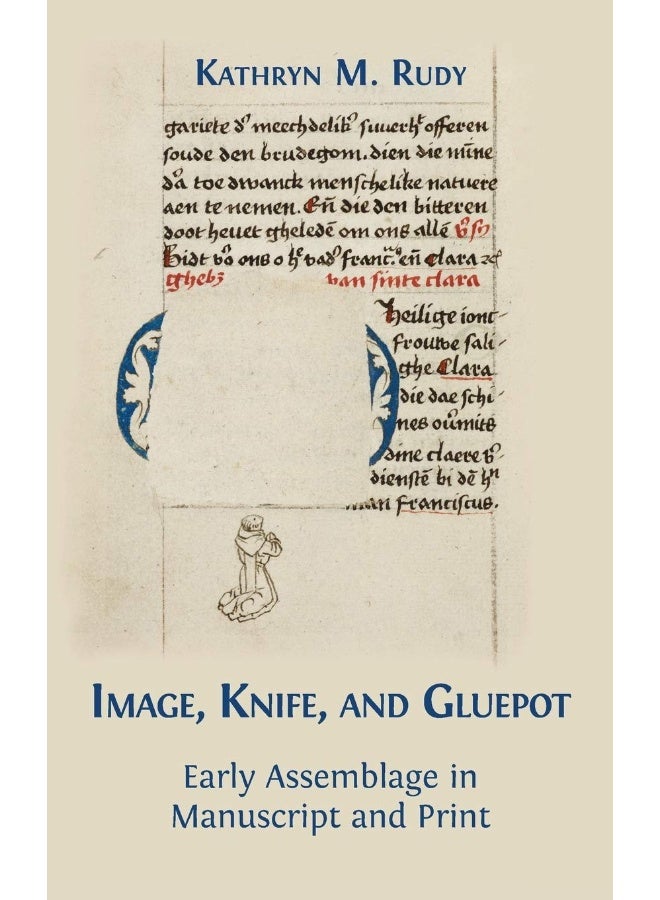 KATHRYN M. RUDY
gariete dʼ meechdelikʼ suuerhᵗ offeren
soude den brudegom. dien die mīne
dʼa toe dwanck menschelike natuere
aen te nemen. Eñ die den bitteren
doot heuet gheledē om ons allē
Bidt vʼo ons o hᵉ vadʼ franc. eñ clara
ghebʒ van sinte clara
Heilige ionc-
frouwe sali-
ghe Clara
die dae schi-
nes oūmits
dine claere vʼ-
dienstē bi dē hⁿ
man Franciscus.
IMAGE, KNIFE, AND GLUEPOT
Early Assemblage in
Manuscript and Print